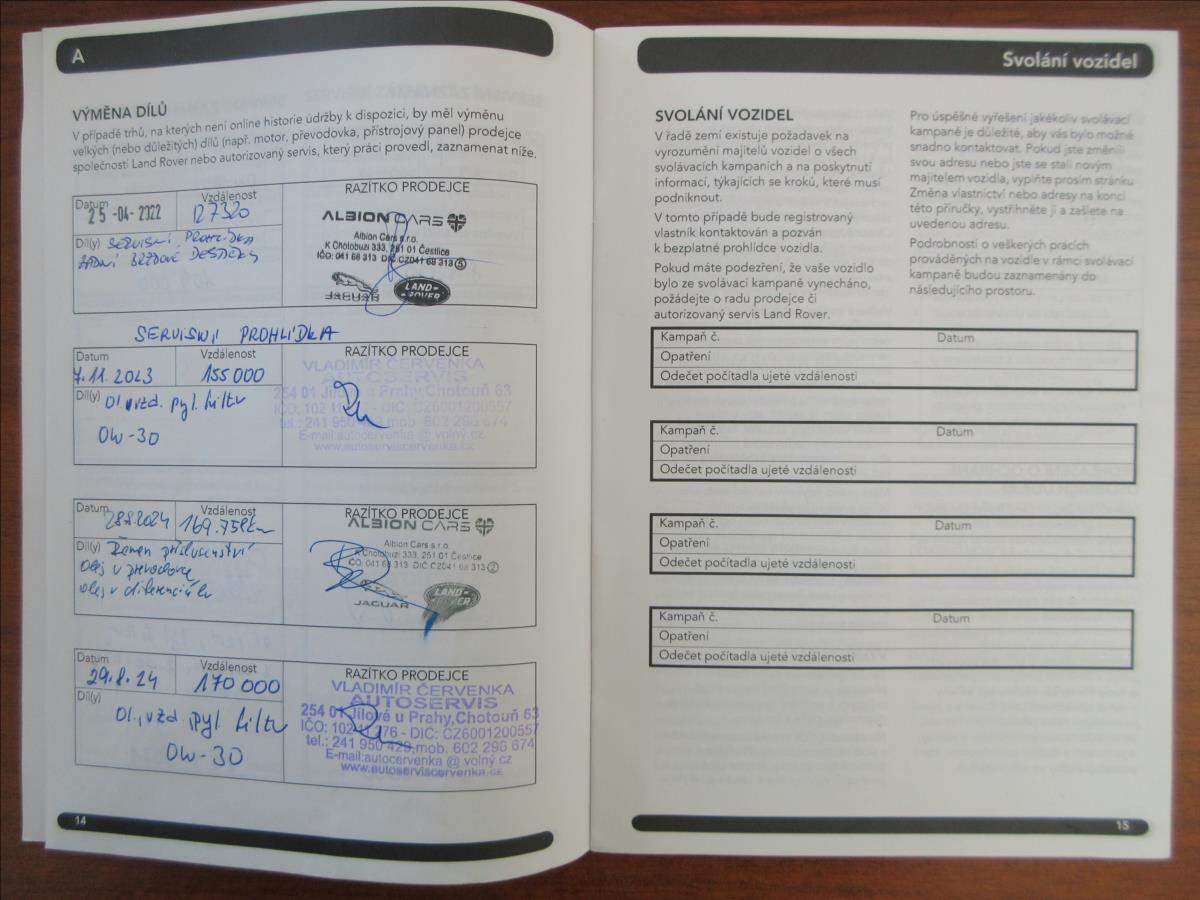 A
VÝMĚNA DÍLŮ
V případě trhů, na kterých není online historie údržby k dispozici, by měl výměnu
velkých (nebo důležitých) dílů (např. motor, převodovka, přístrojový panel) prodejce
společnosti Land Rover nebo autorizovaný servis, který práci provedl, zaznamenat níže.
Datum
25 -04- 2022
Vzdálenost
127320
Díl(y) SERVISNÍ PROHLÍDKA
ZADNÍ BRZDOVÉ DESTIČKY
RAZÍTKO PRODEJCE
ALBION CARS
Albion Cars s.r.o.
K Chotobuzi 333, 251 01 Čestlice
IČO: 041 68 313 DIČ: CZ041 68 313 5
JAGUAR
LAND-ROVER
SERVISNÍ PROHLÍDKA
Datum
7.11.2023
Vzdálenost
155000
Díl(y) Ol. vzd. pyl. filtr
0W-30
RAZÍTKO PRODEJCE
VLADIMÍR ČERVENKA
AUTOSERVIS
254 01 Jílové u Prahy, Chotouň 63
DIČ: CZ6001200557
tel.: 241 950 429, mob. 602 296 674
E-mail:autocervenka @ volný.cz
www.autoserviscervenka.cz
Datum
28.8.2024
Vzdálenost
169.758km
Díl(y) Řemen příslušenství
olej v převodovce
olej v diferenciálu
RAZÍTKO PRODEJCE
ALBION CARS
Albion Cars s.r.o.
K Chotobuzi 333, 251 01 Čestlice
IČO: 041 68 313 DIČ: CZ041 68 313 2
JAGUAR
LAND-ROVER
Datum
29.8.24
Vzdálenost
170 000
Díl(y)
Ol., vzd. pyl filtr
0W-30
RAZÍTKO PRODEJCE
VLADIMÍR ČERVENKA
AUTOSERVIS
254 01 Jílové u Prahy, Chotouň 63
DIČ: CZ6001200557
tel.: 241 950 429, mob. 602 296 674
E-mail:autocervenka @ volný.cz
www.autoserviscervenka.cz
14
Svolání vozidel
SVOLÁNÍ VOZIDEL
V řadě zemí existuje požadavek na
vyrozumění majitelů vozidel o všech
svolávacích kampaních a na poskytnutí
informací, týkajících se kroků, které musí
podniknout.
V tomto případě bude registrovaný
vlastník kontaktován a pozván
k bezplatné prohlídce vozidla.
Pokud máte podezření, že vaše vozidlo
bylo ze svolávací kampaně vynecháno,
požádejte o radu prodejce či
autorizovaný servis Land Rover.
Pro úspěšné vyřešení jakékoliv svolávací
kampaně je důležité, aby vás bylo možné
snadno kontaktovat. Pokud jste změnili
svou adresu nebo jste se stali novým
majitelem vozidla, vyplňte prosím stránku
Změna vlastnictví nebo adresy na konci
této příručky, vystřihněte ji a zašlete na
uvedenou adresu.
Podrobnosti o veškerých pracích
prováděných na vozidle v rámci svolávací
kampaně budou zaznamenány do
následujícího prostoru.
Kampaň č. Datum
Opatření
Odečet počítadla ujeté vzdálenosti
Kampaň č. Datum
Opatření
Odečet počítadla ujeté vzdálenosti
Kampaň č. Datum
Opatření
Odečet počítadla ujeté vzdálenosti
Kampaň č. Datum
Opatření
Odečet počítadla ujeté vzdálenosti
15